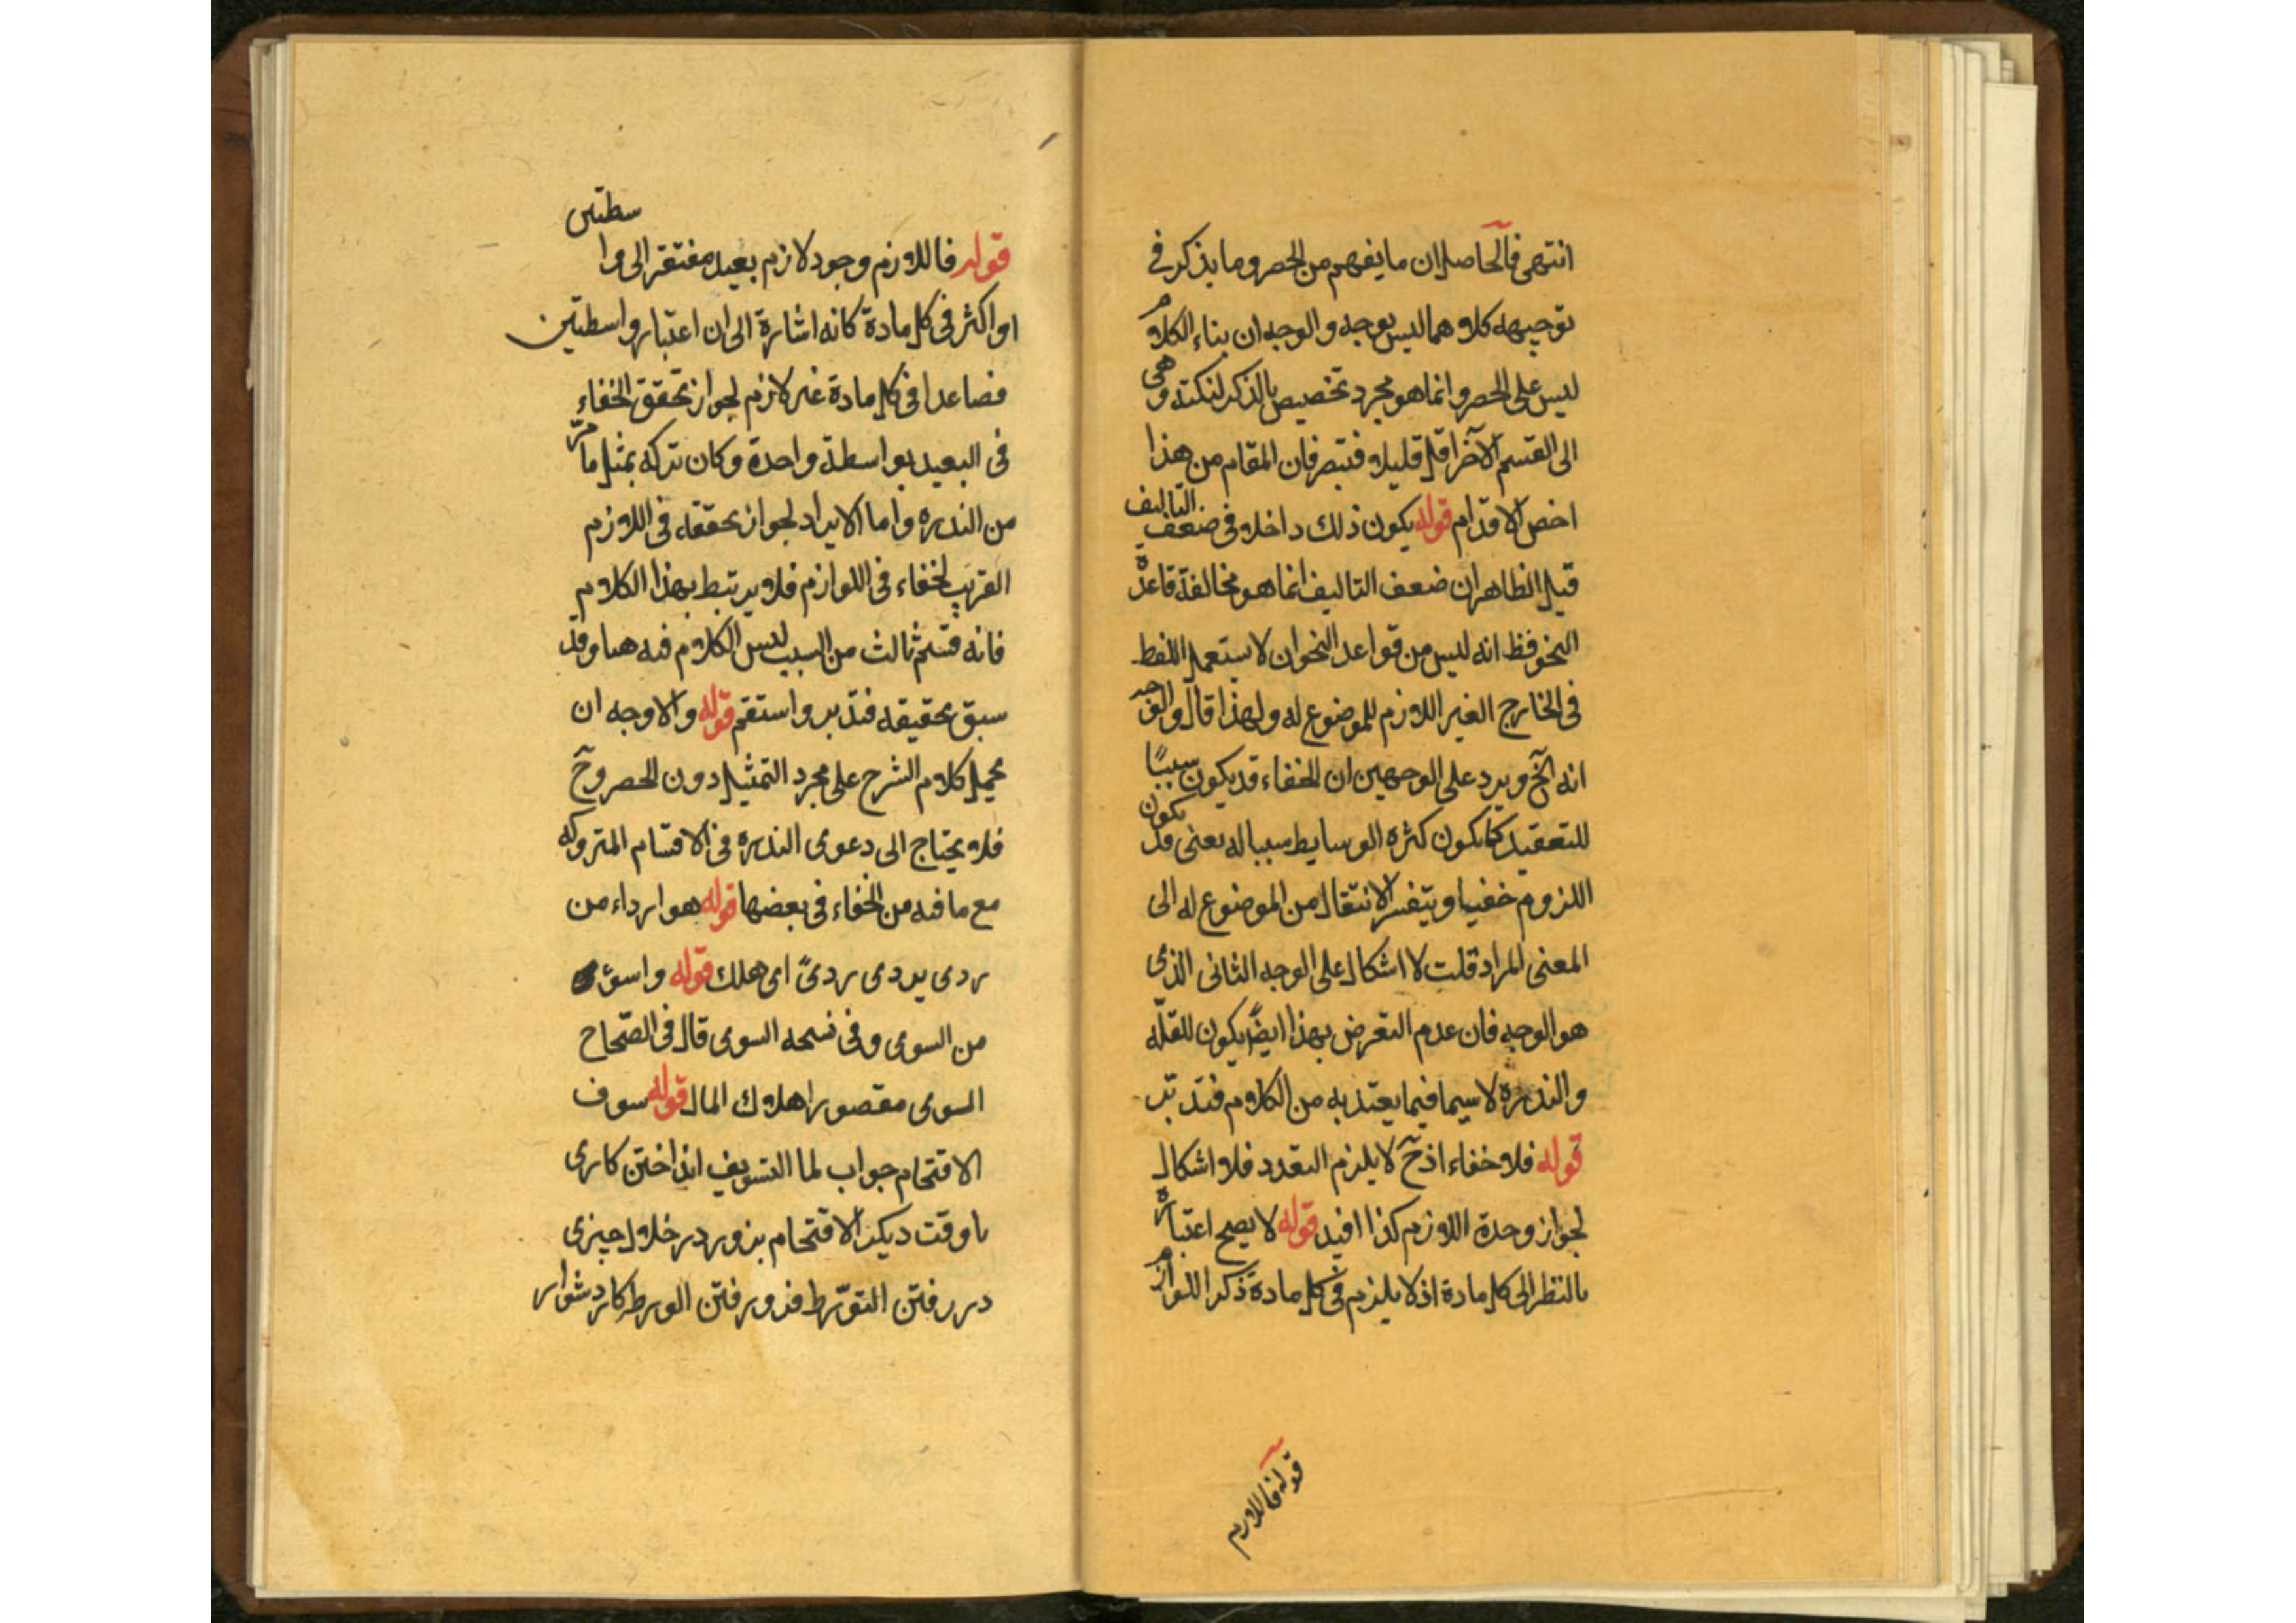 انتهى فالحاصل ان ما يفهم من الحصر وما يذكر في
توجيهه كلاهما ليس بوجه والوجه ان بناء الكلام
ليس على الحصر وانما هو مجرد تخصيص بالذكر لنكتة وهى
الى القسم الآخر اقل قليل فتبصر فان المقام من هذا
اخص الاقدام قوله يكون ذلك داخلا فى ضعف التاليف
قيل الظاهر ان ضعف التاليف انما هو مخالفة قاعدة
النحو فظ انه ليس من قواعد النحو ان لا يستعمل اللفظ
فى الخارج الغير اللازم للموضوع له ولهذا قال والوجه
انه الخ ويرد على الوجهين ان الخفاء قد يكون سببًا
للتعقيد كما يكون كثرة الوسايط سببا له يعنى قد يكون
اللزوم خفيا ويتفسر الانتقال من الموضوع له الى
المعنى المراد قلت لا اشكال على الوجه الثانى الذى
هو الوجه فان عدم التعرض بهذا ايضًا يكون للقلّه
والندرة لا سيما فيما يعتد به من الكلام فتدبّر
قوله فلا خفاء اذ حٓ لا يلزم التعدد فلا اشكال
لجواز وحدة اللازم كذا افيد قوله لا يصح اعتباره
بالنظر الى كل مادة اذ لا يلزم فى كل مادة ذكر اللوازم
قوله فاللازم
قوله فاللازم وجود لازم بعيد مفتقر الى واسطتين
او اكثر فى كل مادة كانه اشارة الى ان اعتبار واسطتين
فصاعدا فى كل مادة غير لازم لجواز تحقق الخفاء
فى البعيد بواسطة واحدة وكان تركه بمثل ما مرّ
من الندره واما الايراد لجواز تحققه فى اللازم
القريب لخفاء فى اللوازم فلا يرتبط بهذا الكلام
فانه قسم ثالث من السبب ليس الكلام فيه هنا وقد
سبق تحقيقه فتدبر واستقم قوله والاوجه ان
يحمل كلام الشرح على مجرد التمثيل دون الحصر وحٓ
فلا يحتاج الى دعوى الندره فى الاقسام المتروكه
مع ما فيه من الخفاء فى بعضها قوله هو ارداء من
ردى يردى ردىً اى هلك قوله واسوء
من السوى وفى نسخه السوى قال فى الصّحاح
السوى مقصورا هلاك المال قوله سوف
الاقتحام جواب لما التسويف انداختن كارى
با وقت ديكر الاقتحام بزور در خلال چيزى
در رفتن التورّط فرو رفتن الورطه كار دشوار